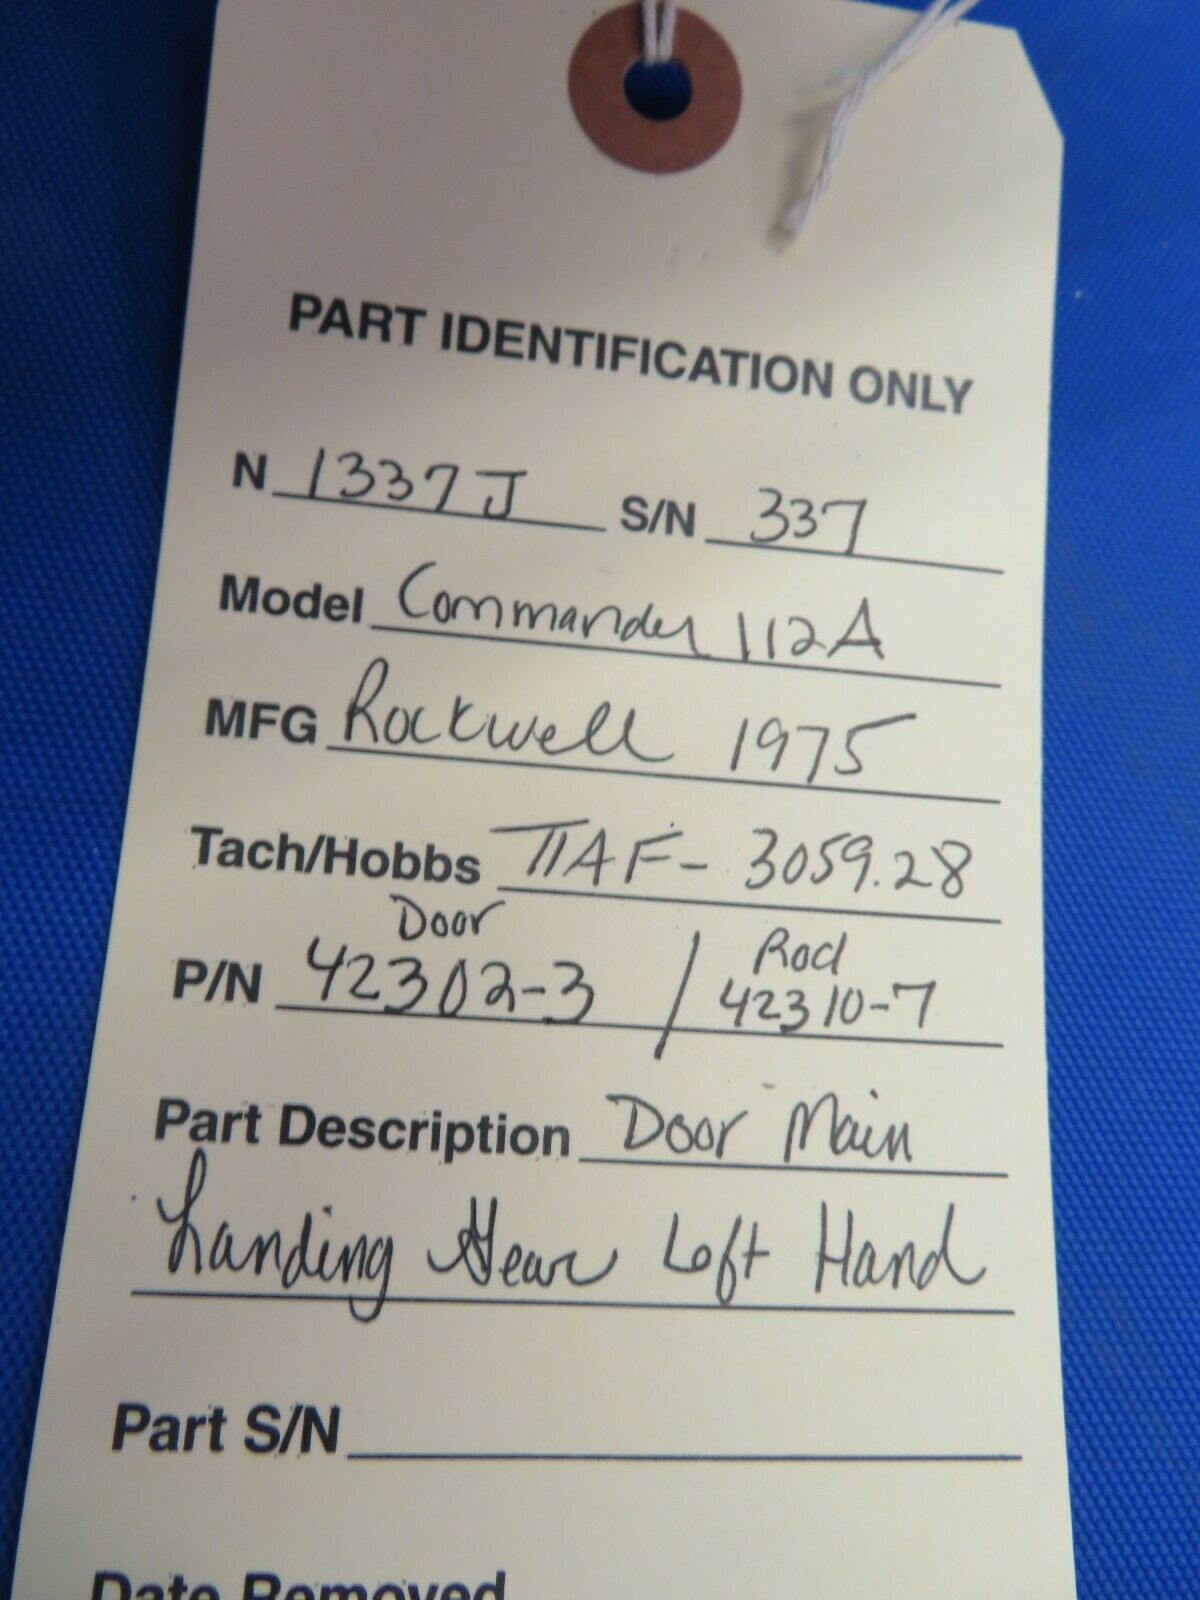 PART IDENTIFICATION ONLY
N 1337J S/N 337
Model Commander 112A
MFG Rockwell 1975
Tach/Hobbs TTAF- 3059.28
Door Rod
P/N 42302-3 / 42310-7
Part Description Door Main
Landing Gear Left Hand
Part S/N
Date Removed